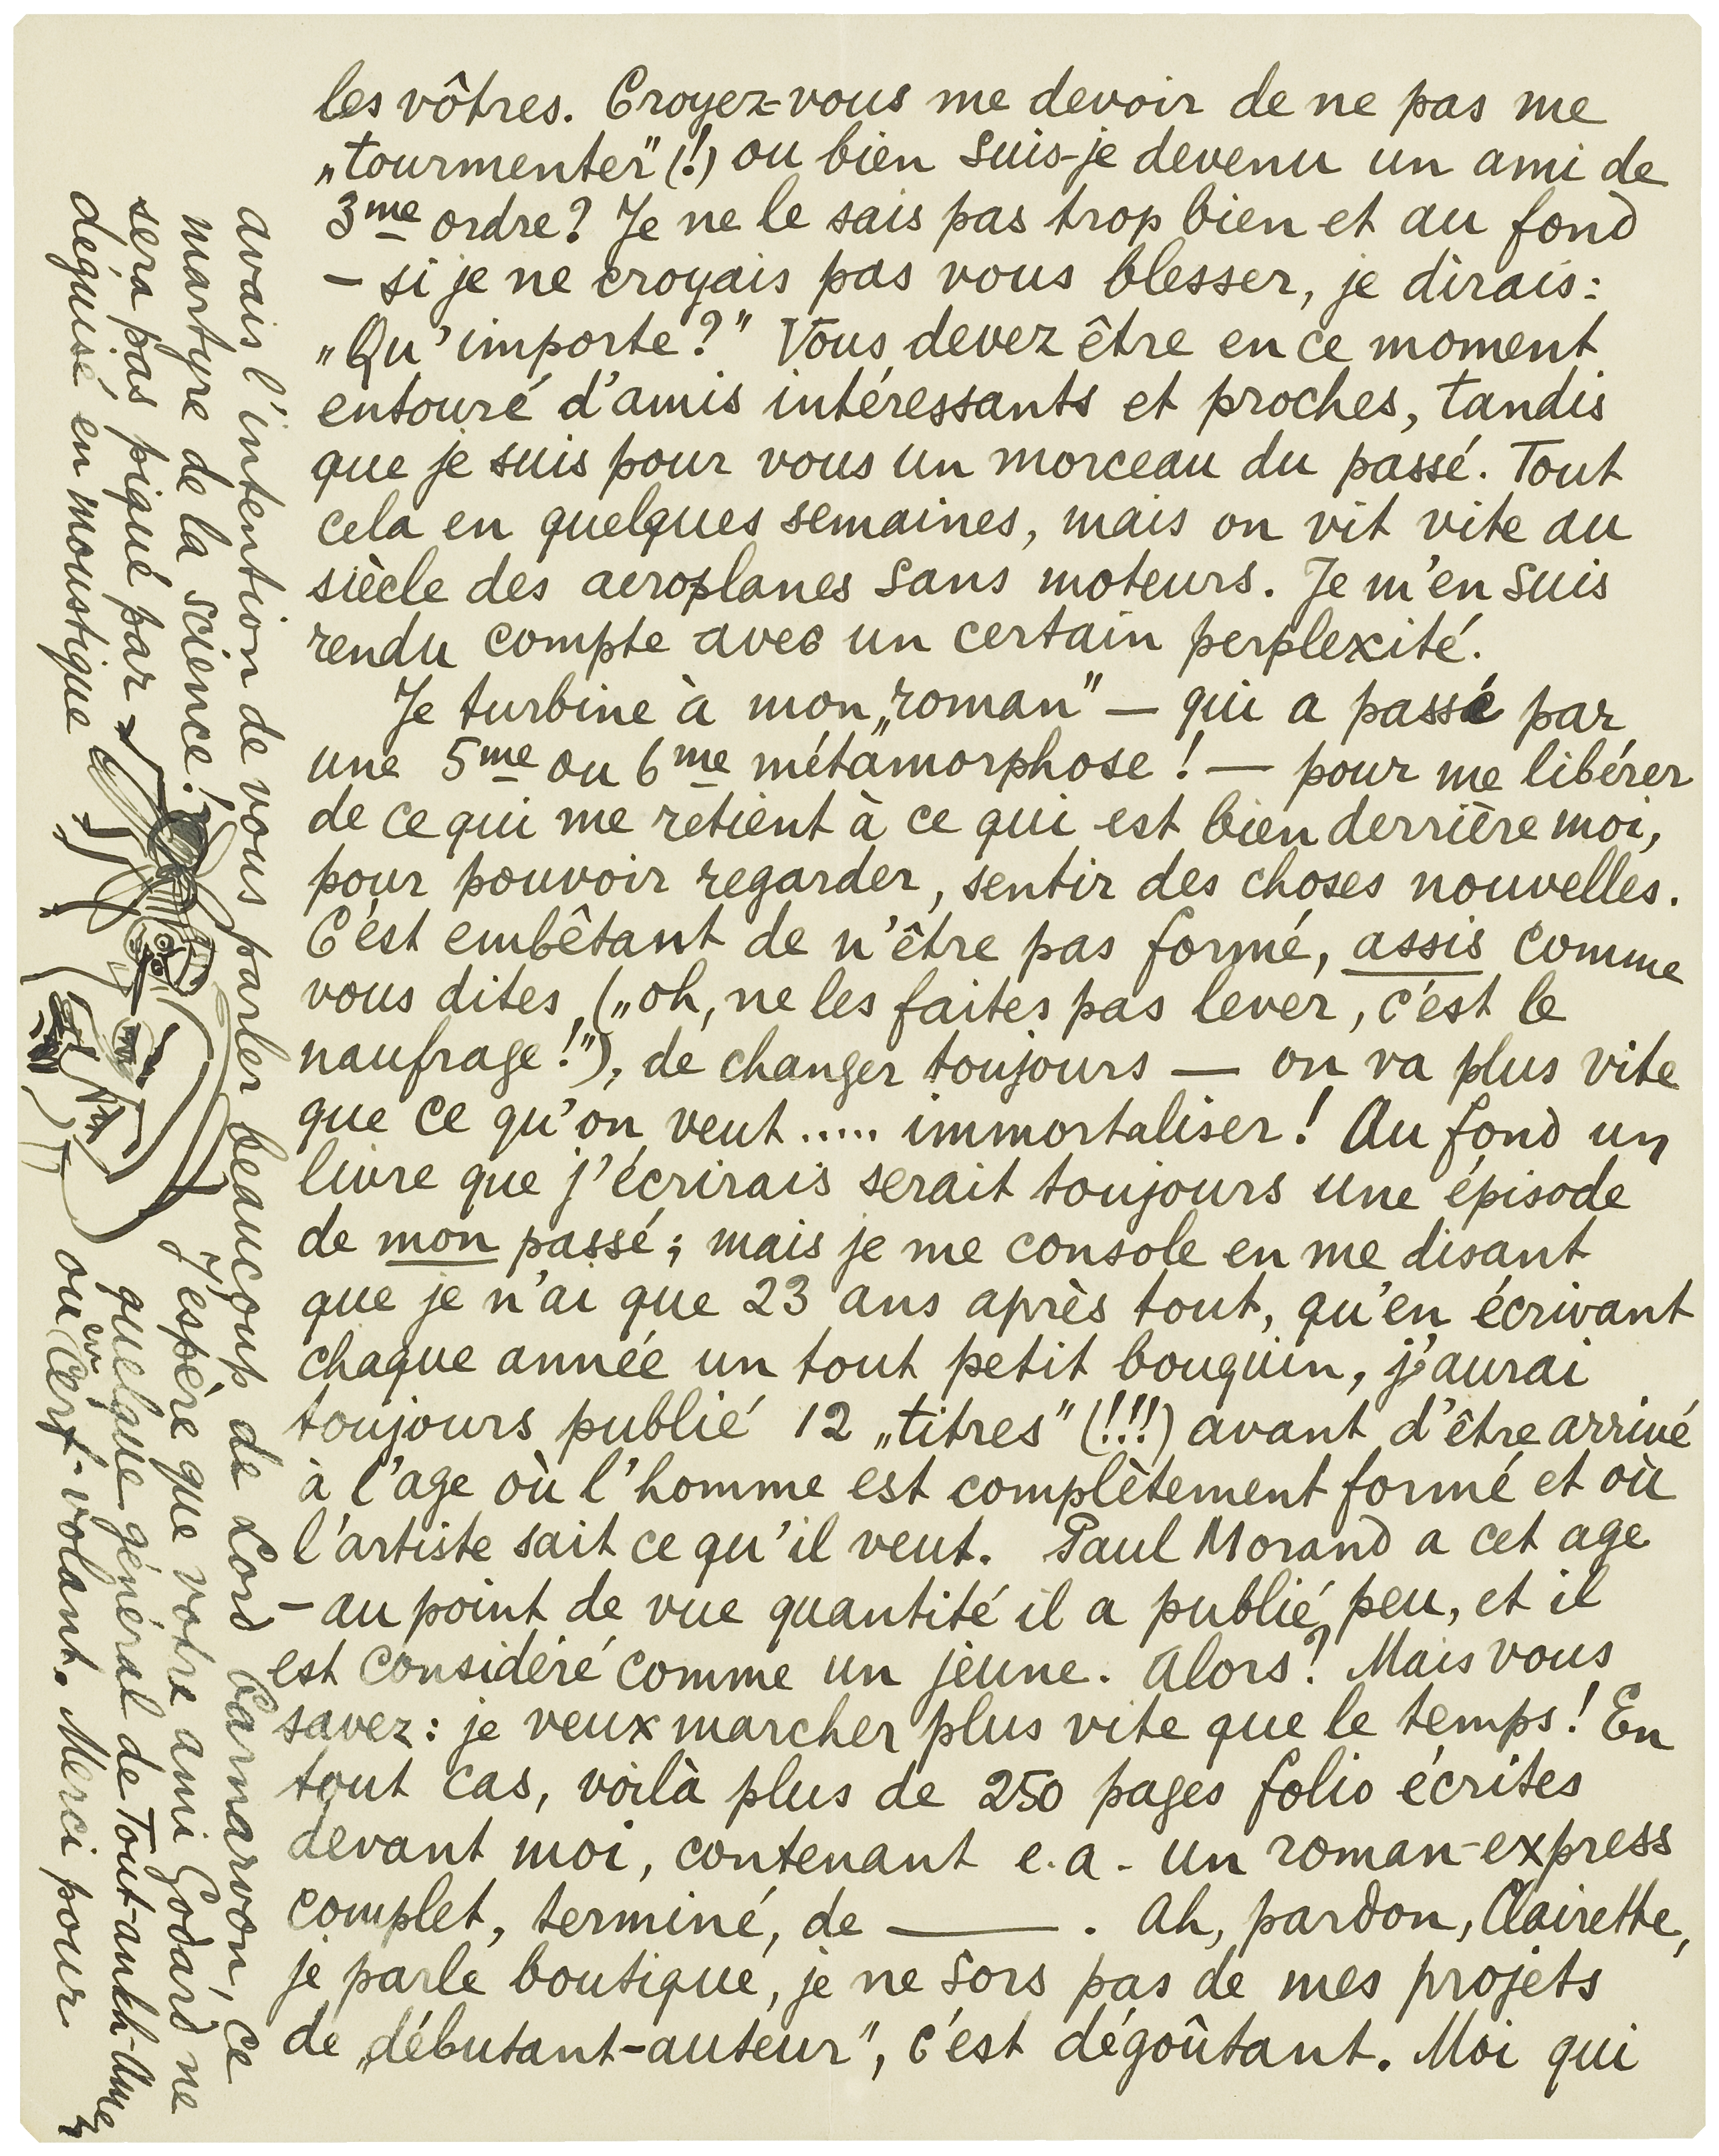 les vôtres. Croyez-vous me devoir de ne pas me
„tourmenter" (!) ou bien suis-je devenu un ami de
3me ordre? Je ne le sais pas trop bien et au fond
– si je ne croyais pas vous blesser, je dirais:
„Qu'importe?" Vous devez être en ce moment
entouré d'amis intéressants et proches, tandis
que je suis pour vous un morceau du passé. Tout
cela en quelques semaines, mais on vit vite au
siècle des aeroplanes sans moteurs. Je m'en suis
rendu compte avec un certain perplexité.
Je turbine à mon „roman" – qui a passé par
une 5me ou 6me métamorphose! – pour me libérer
de ce qui me retient à ce qui est bien derrière moi,
pour pouvoir regarder, sentir des choses nouvelles.
C'est embêtant de n'être pas formé, assis comme
vous dites („oh, ne les faites pas lever, c'est le
naufrage!"), de changer toujours – on va plus vite
que ce qu'on veut ..... immortaliser! Au fond un
livre que j'écrirais serait toujours une épisode
de mon passé; mais je me console en me disant
que je n'ai que 23 ans après tout, qu'en écrivant
chaque année un tout petit bouquin, j'aurai
toujours publié 12 „titres" (!!!) avant d'être arrivé
à l'age où l'homme est complètement formé et où
l'artiste sait ce qu'il veut. Paul Morand a cet age
– au point de vue quantité il a publié peu, et il
est considéré comme un jeune. Alors? Mais vous
savez: je veux marcher plus vite que le temps! En
tout cas, voilà plus de 250 pages folio écrites
devant moi, contenant e.a. un roman-express
complet, terminé, de ——— . Ah, pardon, Clairette,
je parle boutique, je ne sors pas de mes projets
de „débutant-auteur", c'est dégoûtant. Moi qui
avais l'intention de vous parler beaucoup de Lord Carnarvon, ce
martyre de la science! J'espère que votre ami Godard ne
sera pas piqué par quelque général de Tout-ankh-Amen
déguisé en moustique ou en cerf-volant. Merci pour